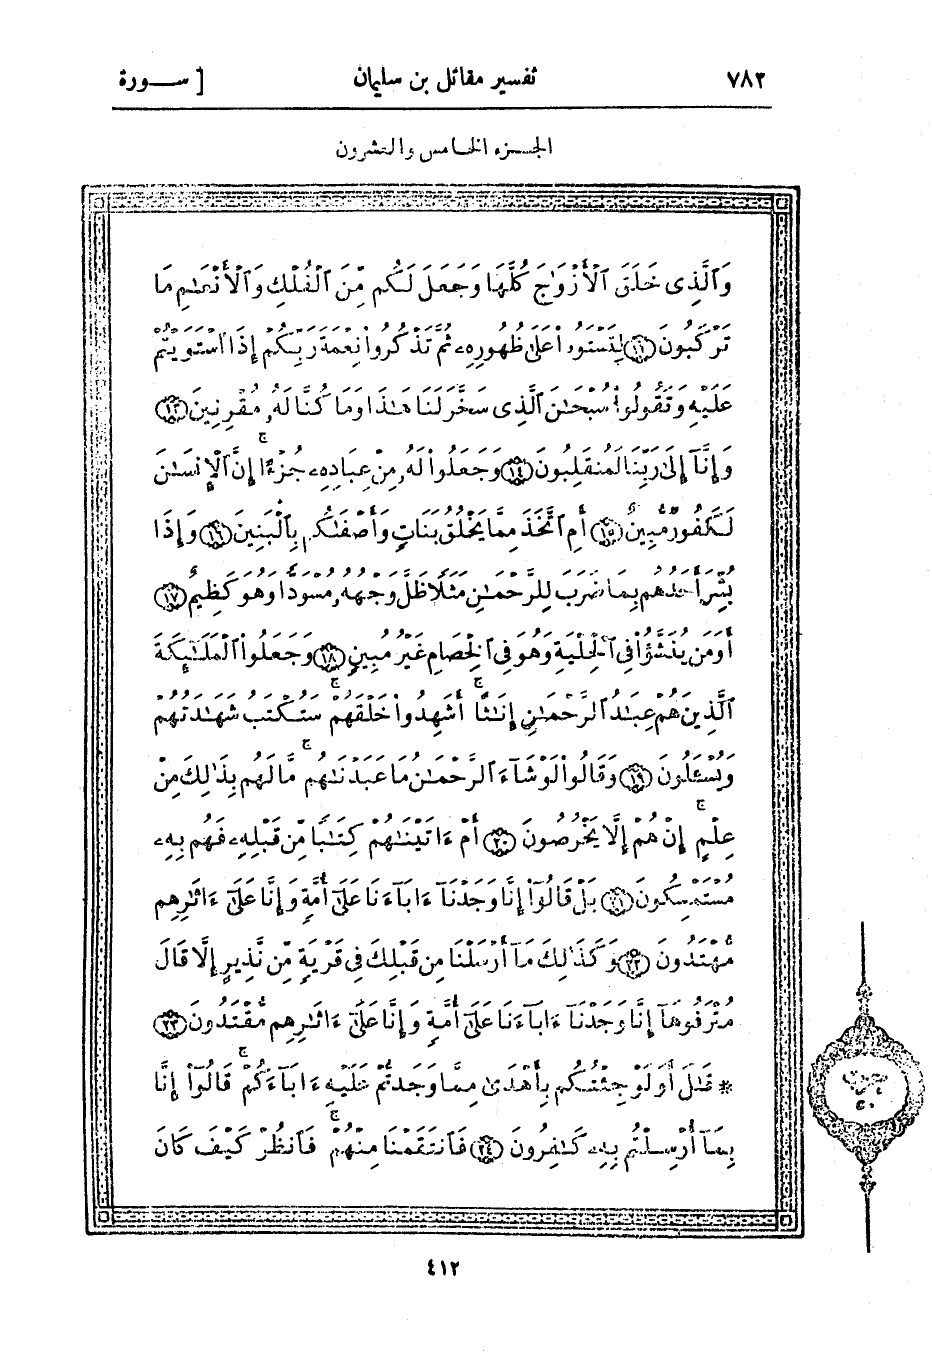 ٧٨٢ تفسير مقاتل بن سليمان [ ســورة
الجــزء الخامس والعشرون
وَٱلَّذِى خَلَقَ ٱلْأَزْوَٰجَ كُلَّهَا وَجَعَلَ لَكُم مِّنَ ٱلْفُلْكِ وَٱلْأَنْعَٰمِ مَا
تَرْكَبُونَ ﴿١٢﴾ لِتَسْتَوُۥا۟ عَلَىٰ ظُهُورِهِۦ ثُمَّ تَذْكُرُوا۟ نِعْمَةَ رَبِّكُمْ إِذَا ٱسْتَوَيْتُمْ
عَلَيْهِ وَتَقُولُوا۟ سُبْحَٰنَ ٱلَّذِى سَخَّرَ لَنَا هَٰذَا وَمَا كُنَّا لَهُۥ مُقْرِنِينَ ﴿١٣﴾
وَإِنَّآ إِلَىٰ رَبِّنَا لَمُنقَلِبُونَ ﴿١٤﴾ وَجَعَلُوا۟ لَهُۥ مِنْ عِبَادِهِۦ جُزْءًا ۚ إِنَّ ٱلْإِنسَٰنَ
لَكَفُورٌ مُّبِينٌ ﴿١٥﴾ أَمِ ٱتَّخَذَ مِمَّا يَخْلُقُ بَنَاتٍ وَأَصْفَىٰكُم بِٱلْبَنِينَ ﴿١٦﴾ وَإِذَا
بُشِّرَ أَحَدُهُم بِمَا ضَرَبَ لِلرَّحْمَٰنِ مَثَلًا ظَلَّ وَجْهُهُۥ مُسْوَدًّا وَهُوَ كَظِيمٌ ﴿١٧﴾
أَوَمَن يُنَشَّؤُا۟ فِى ٱلْحِلْيَةِ وَهُوَ فِى ٱلْخِصَامِ غَيْرُ مُبِينٍ ﴿١٨﴾ وَجَعَلُوا۟ ٱلْمَلَٰٓئِكَةَ
ٱلَّذِينَ هُمْ عِبَٰدُ ٱلرَّحْمَٰنِ إِنَٰثًا ۚ أَشَهِدُوا۟ خَلْقَهُمْ ۚ سَتُكْتَبُ شَهَٰدَتُهُمْ
وَيُسْـَٔلُونَ ﴿١٩﴾ وَقَالُوا۟ لَوْ شَآءَ ٱلرَّحْمَٰنُ مَا عَبَدْنَٰهُم ۚ مَّا لَهُم بِذَٰلِكَ مِنْ
عِلْمٍ ۚ إِنْ هُمْ إِلَّا يَخْرُصُونَ ﴿٢٠﴾ أَمْ ءَاتَيْنَٰهُمْ كِتَٰبًا مِّن قَبْلِهِۦ فَهُم بِهِۦ
مُسْتَمْسِكُونَ ﴿٢١﴾ بَلْ قَالُوٓا۟ إِنَّا وَجَدْنَآ ءَابَآءَنَا عَلَىٰٓ أُمَّةٍ وَإِنَّا عَلَىٰٓ ءَاثَٰرِهِم
مُّهْتَدُونَ ﴿٢٢﴾ وَكَذَٰلِكَ مَآ أَرْسَلْنَا مِن قَبْلِكَ فِى قَرْيَةٍ مِّن نَّذِيرٍ إِلَّا قَالَ
مُتْرَفُوهَآ إِنَّا وَجَدْنَآ ءَابَآءَنَا عَلَىٰٓ أُمَّةٍ وَإِنَّا عَلَىٰٓ ءَاثَٰرِهِم مُّقْتَدُونَ ﴿٢٣﴾
* قَٰلَ أَوَلَوْ جِئْتُكُم بِأَهْدَىٰ مِمَّا وَجَدتُّمْ عَلَيْهِ ءَابَآءَكُمْ ۚ قَالُوٓا۟ إِنَّا
بِمَآ أُرْسِلْتُم بِهِۦ كَٰفِرُونَ ﴿٢٤﴾ فَٱنتَقَمْنَا مِنْهُمْ ۚ فَٱنظُرْ كَيْفَ كَانَ
حزب
٥٠
٤١٢